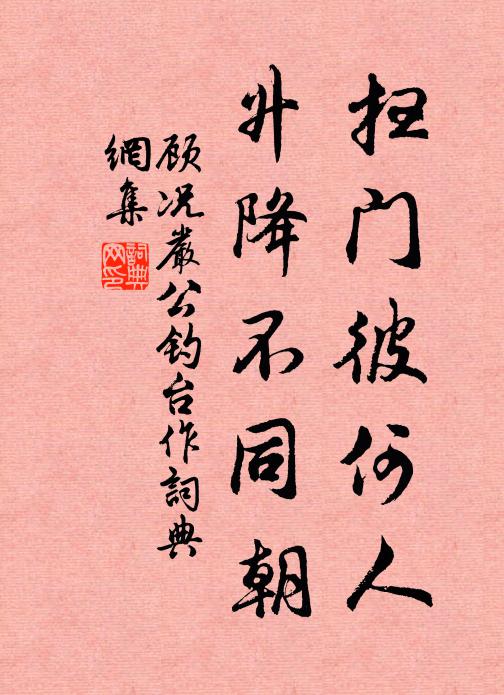 扫门彼何人
升降不同朝
顾况嚴公钓台作詞典
網集
詞典网印